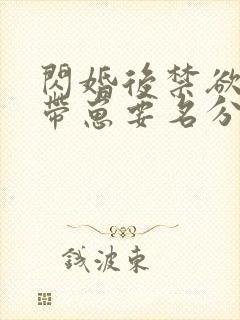 閃婚後禁欲
帶崽要名分
錢波東